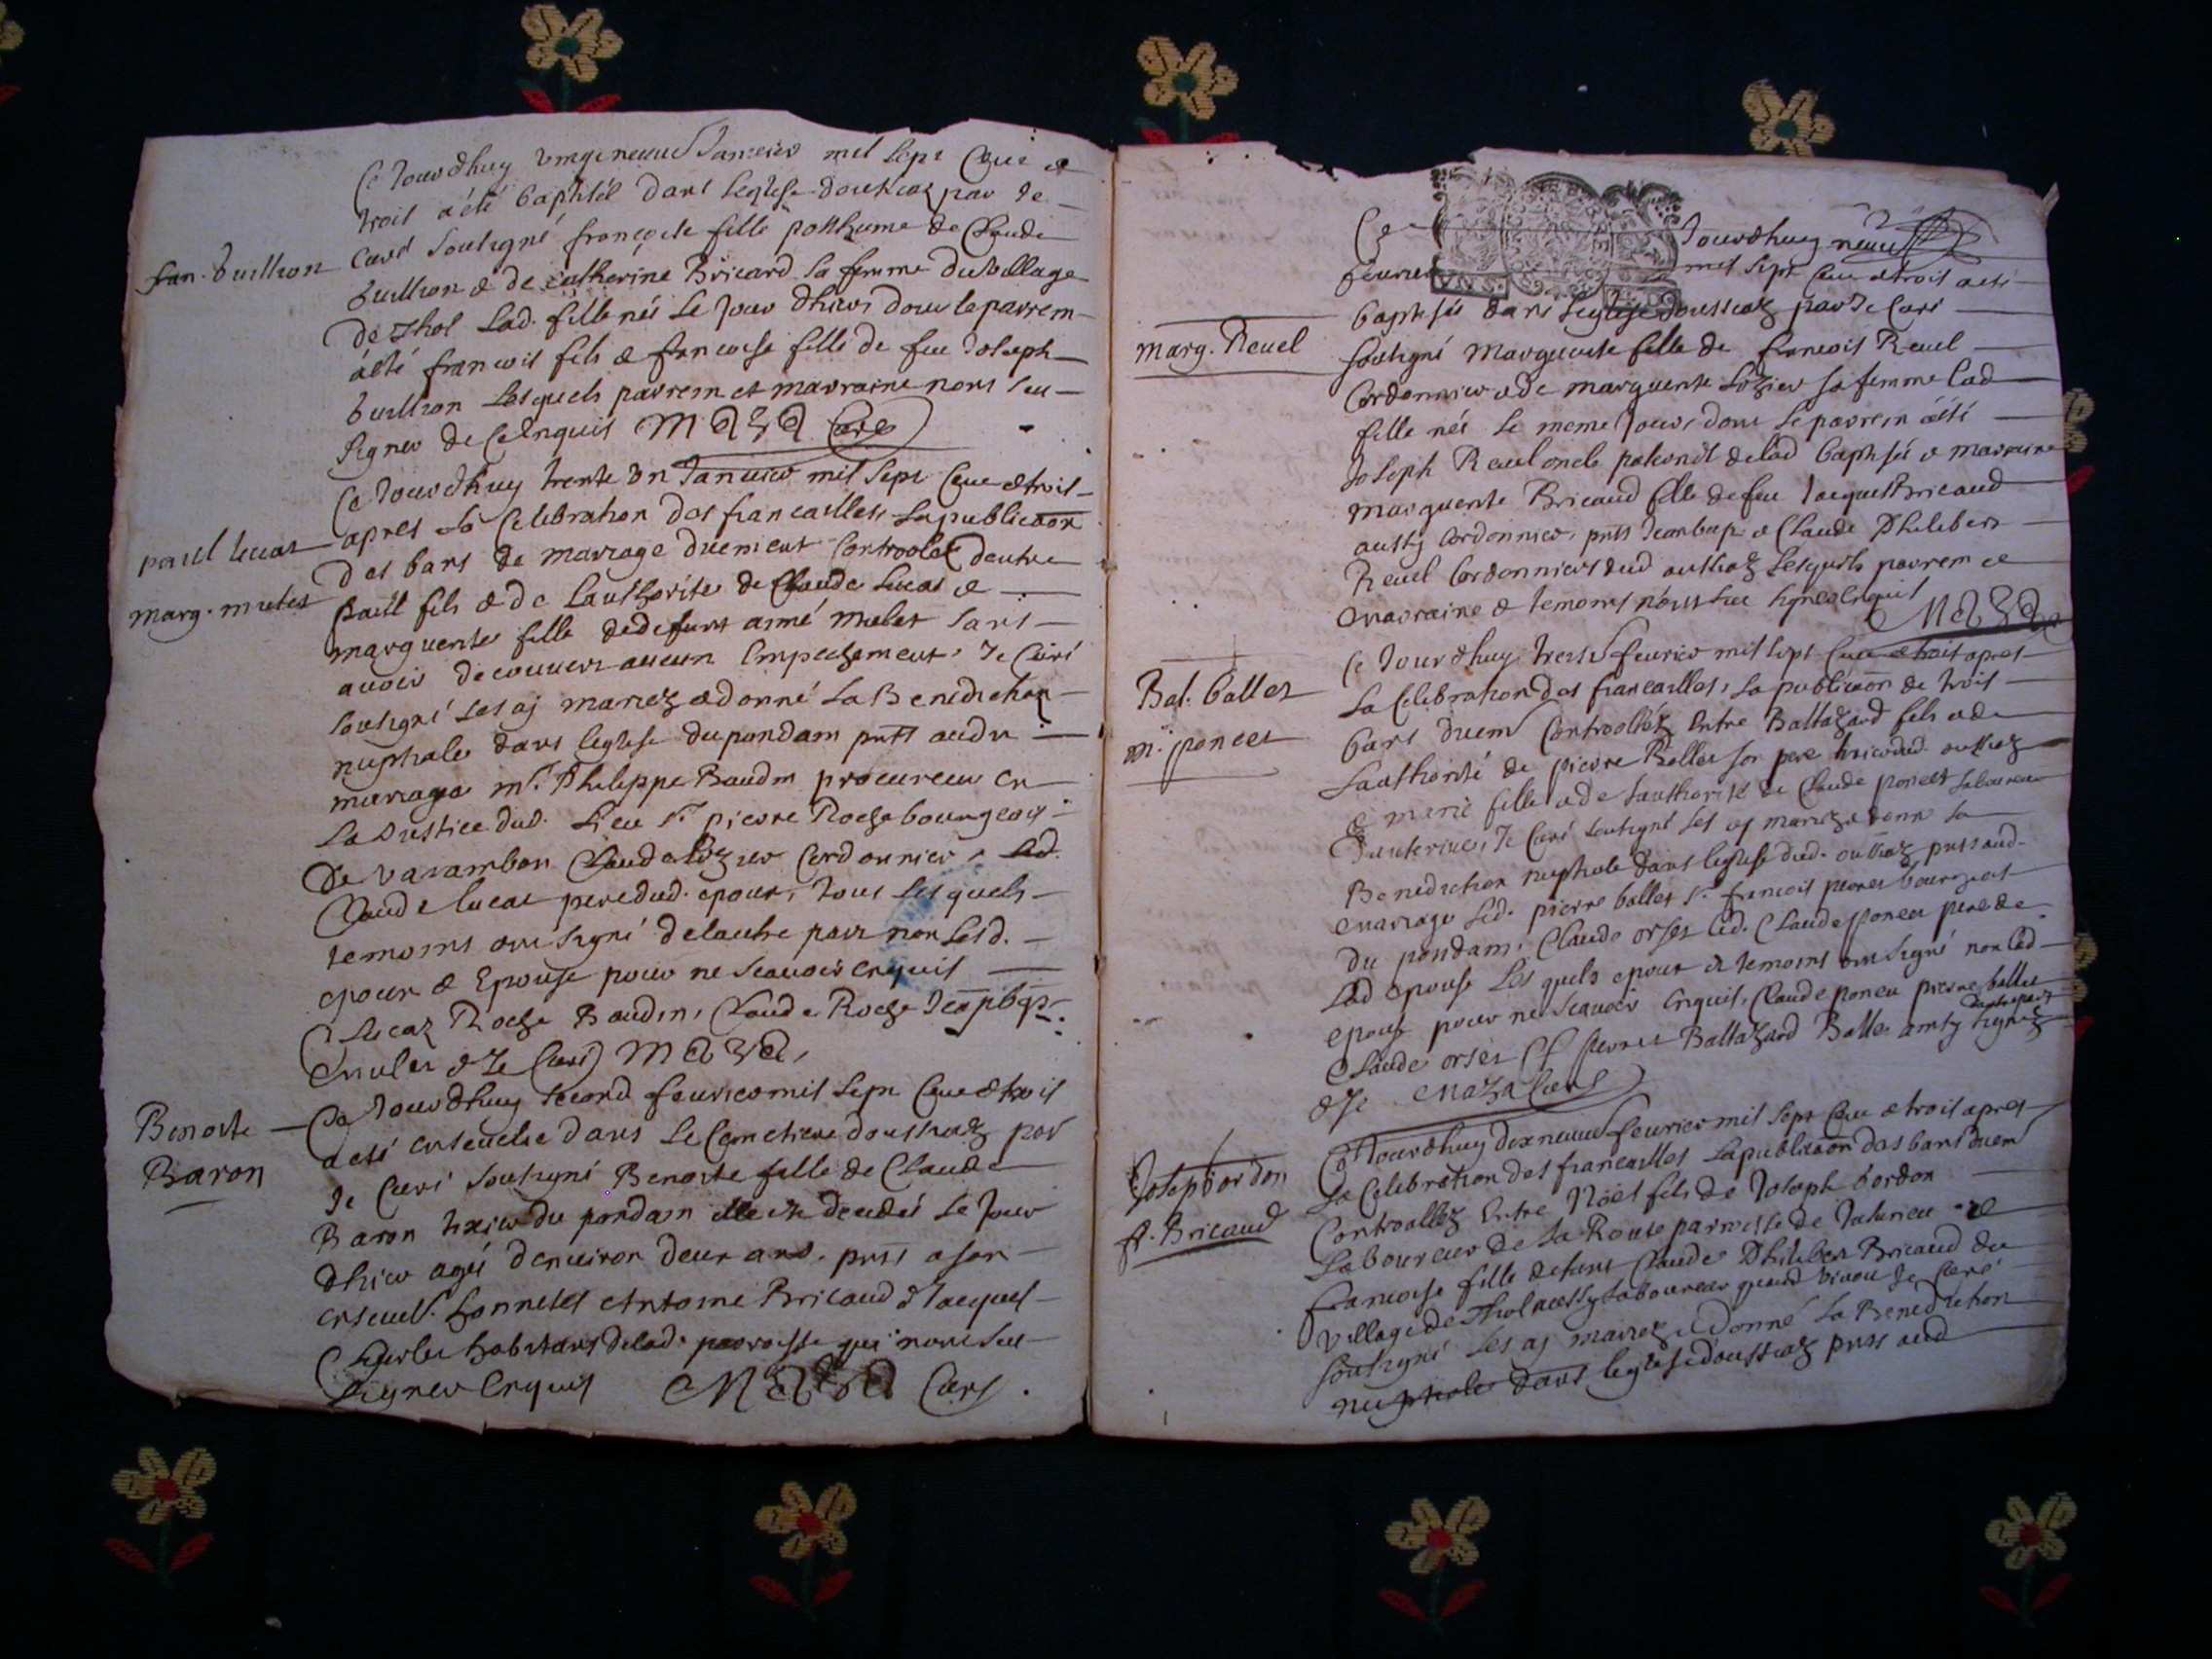 Ce Jourdhuy vingtneuf Janvier mil sept Cent et
trois a été baptisée dans leglise doutriaz par Je
fran. buillion
Curé soubsigné françoise fille posthume de Claude
buillion & de catherine Bricard sa femme du village
de Thol lad. fille née le Jour dhier, dont le parrein
a été francois fils & francoise fille de feu Joseph
buillion lesquels parrein et marraine nont sceu
signer de ce enquis Maza Curé
Ce Jourdhuy trente un Janvier mil sept Cent & trois
paul lucas
apres la Celebration des fiancailles, la publicaon
des bans de mariage duement Controolés dentre
marg. mulet
paul fils & de lauthorité de Claude lucas &
marguerite fille de defunt aimé mulet sans
avoir decouvert aucun Empechement, Je Curé
soubsigné les aj mariez & donné la Benediction
nuptiale dans leglise du pondain pnts audit
mariage mr. Philippe Baudin procureur en
la Justice dud. lieu sr. pierre Roche bourgeois
de varambon Claude lozier Cordonnier, led.
Claude lucas pere dud. epoux, tous lesquels
temoins ont signé de lautre part non lesd.
epoux & Epouse pour ne scavoir enquis
C Lucaz Roche Baudin, Claude Roche
mulet & Je Curé Maza,
Benoite
Baron
Ce Jourdhuy second fevrier mil sept Cent & trois
a eté ensevelie dans le Cemetiere doutriaz par
Je Curé soubsigné Benoite fille de Claude
Baron du pondain decedée le Jour
dhier agée denviron deux ans. pnts a son
ensevel. honnetes Antoine Bricaud & Jacques
habitans delad. parroisse qui nont sceu
signer enquis Maza Curé.
Ce Jourdhuy neuf
fevrier mil sept Cent & trois a eté
baptisée dans leglise doutriaz par Je Curé
marg. Revel
soubsigné marguerite fille de francois Revel
Cordonnier & de marguerite lozier sa femme lad
fille née le meme Jour, dont le parrein a été
Joseph Revel oncle paternel de lad baptisée & marraine
marguerite Bricaud fille de feu Jacques Bricaud
aussy Cordonnier, pnts Jean bap. & Claude Philibert
Revel Cordonniers dud outriaz lesquels parrein &
marraine & temoins nont sceu signer enquis
Maza
Ce Jourdhuy treise fevrier mil sept Cent & trois apres
Bal. ballet
la Celebration des fiancailles, la publicaon de trois
m. poncet
bans duem Controollés entre Baltazard fils & de
lauthorité de pierre Ballet son pere dud. outriaz
& marie fille & de lauthorité de Claude poncet laboureur
Je Curé soubsigné les aj mariez & donné la
Benediction nuptiale dans leglise dud. outriaz pnts aud.
mariage led. pierre ballet sr. francois bourgeois
du pondain, Claude orset led. Claude poncet pere de
lad epouse lesquels epoux & temoins ont signé non lad
epouse pour ne scavoir enquis, Claude poncet pierre ballet
Claude orset Baltazard Ballet signez
& Je Maza Curé
Joseph bordon
f. Bricaud
Ce Jourdhuy dixneuf fevrier mil sept Cent & trois apres
la Celebration des fiancailles la publicaon des bans duem
Controollez Entre Noël fils de Joseph bordon
laboureur de la Route parroisse de Jusurieu &
francoise fille de defunt Claude Philibert Bricaud du
village de Thol aussy laboureur quand vivoit Je Curé
soubsigné les aj mariez & donné la Benediction
nuptiale dans leglise doutriaz pnts aud